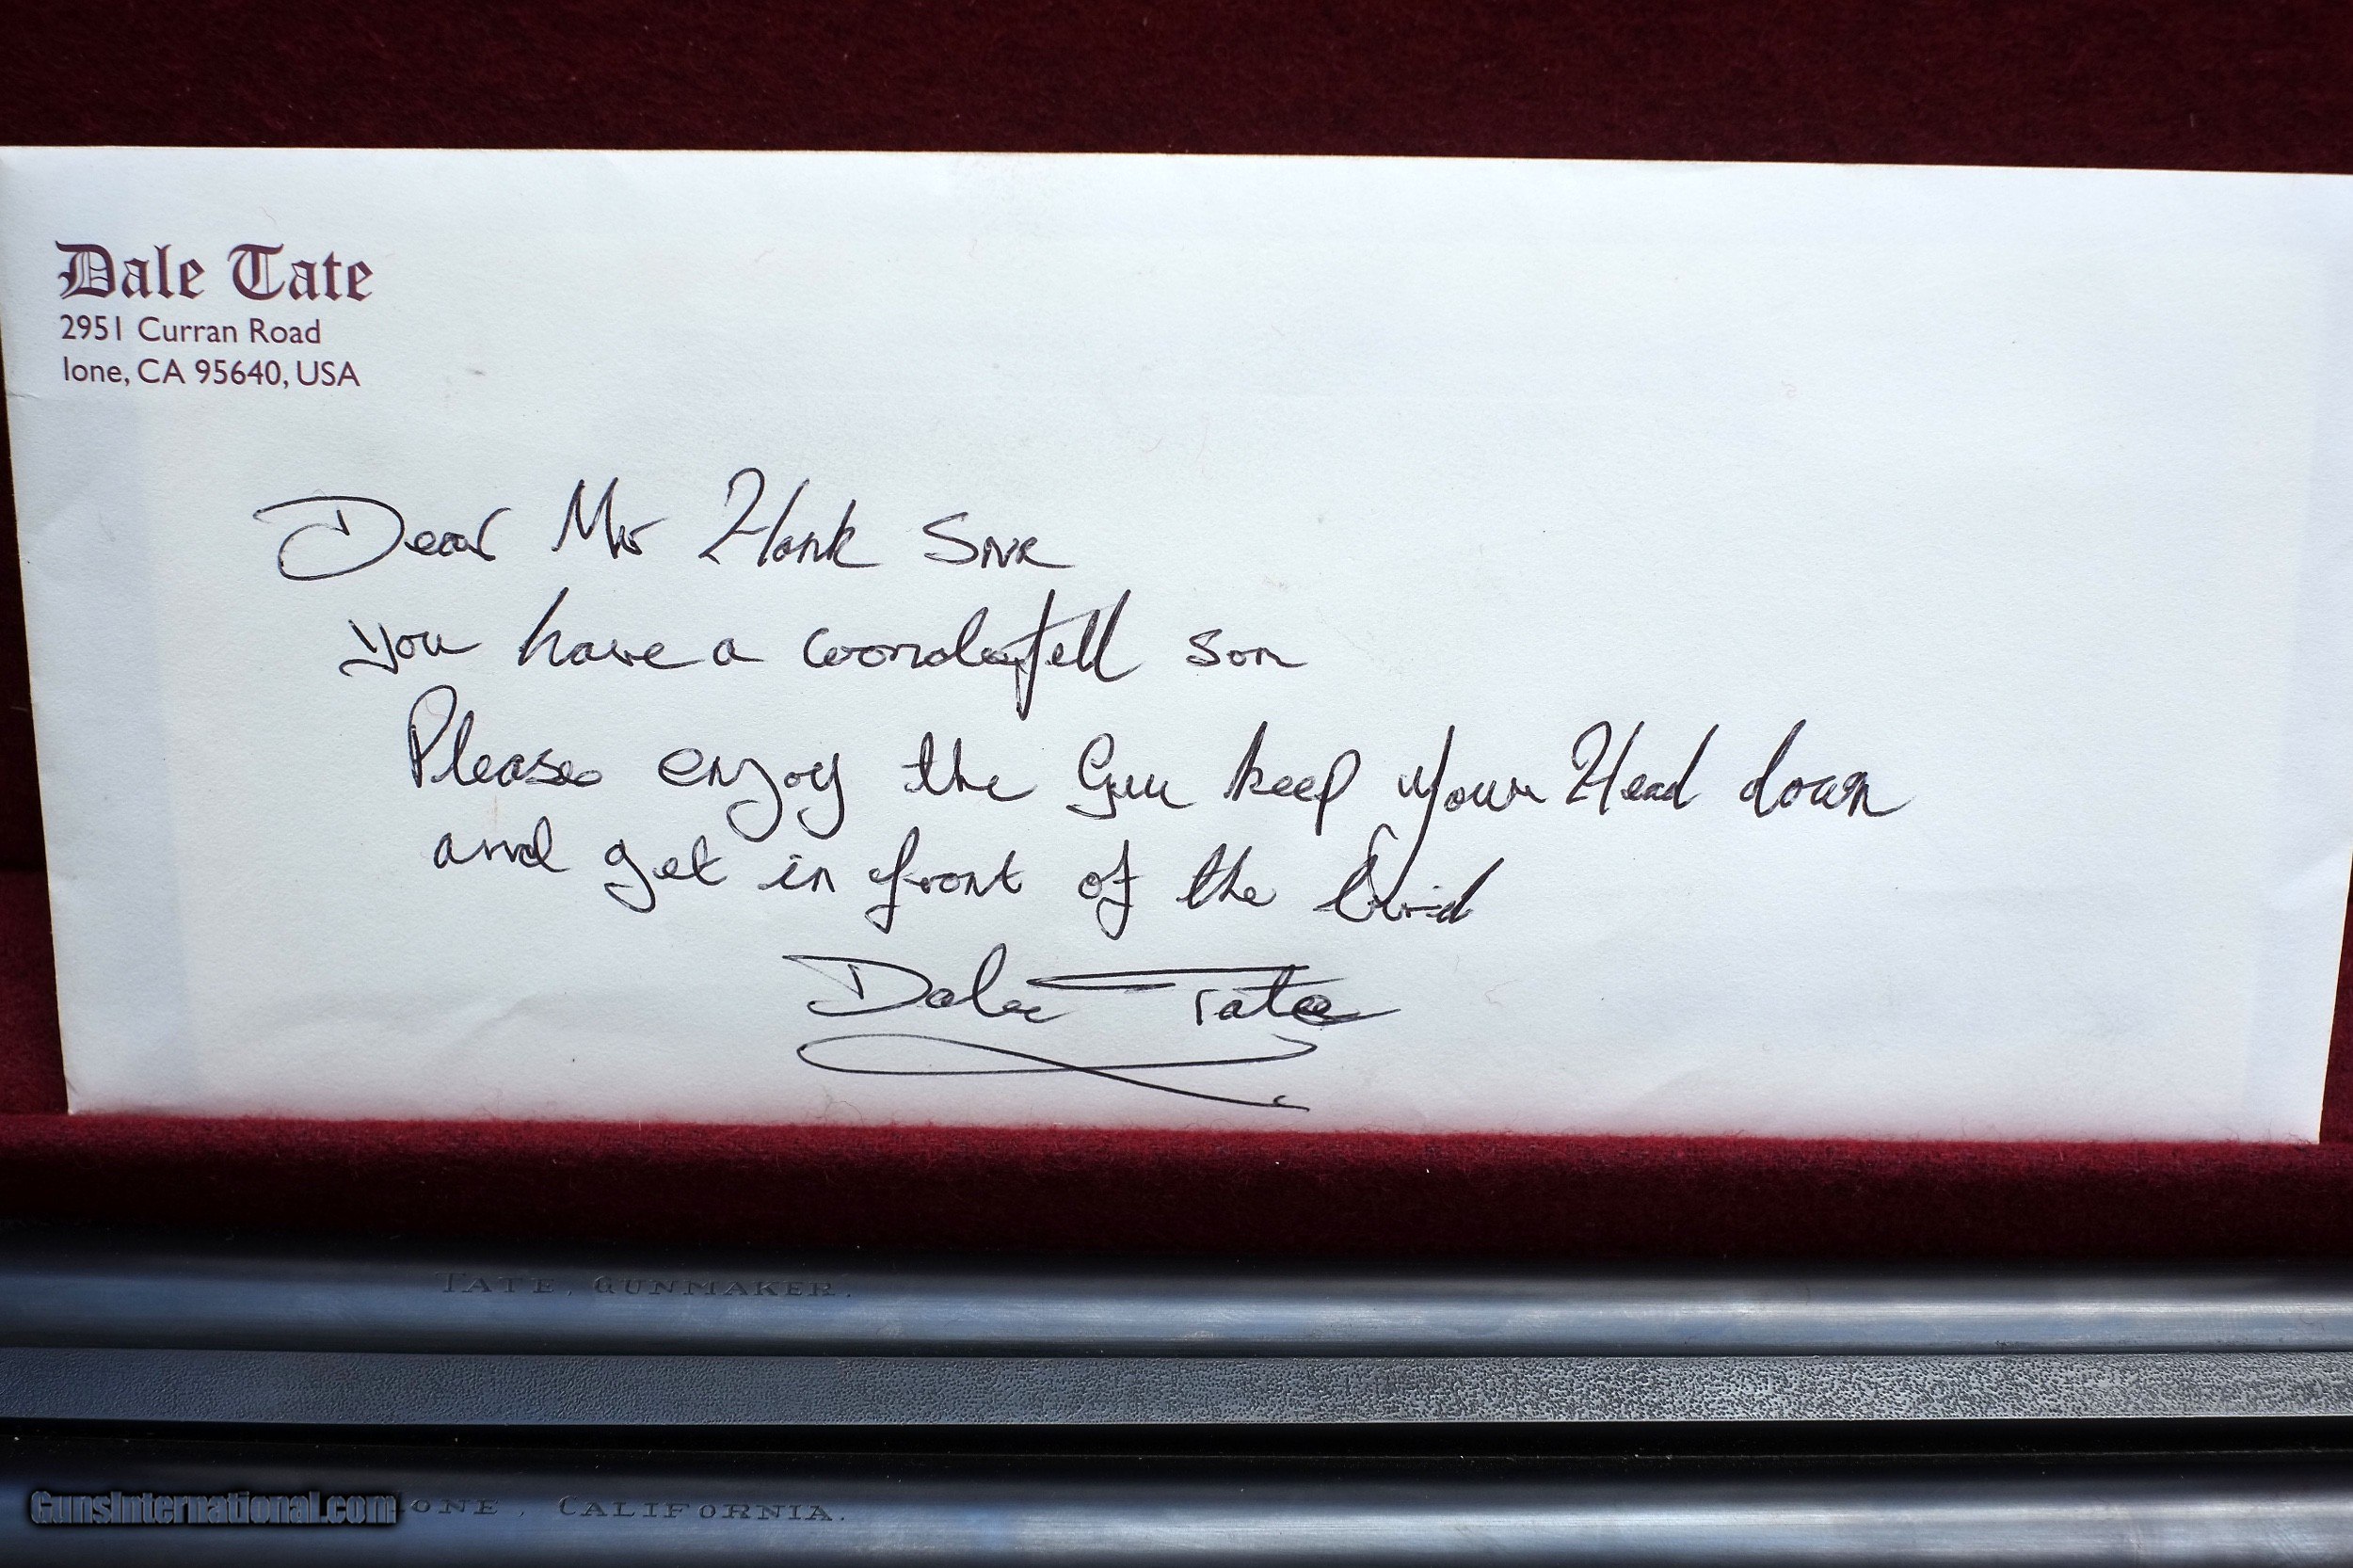 Dale Tate
2951 Curran Road
Ione, CA 95640, USA
Dear Mr Hank Snr
you have a wonderfull son
Please enjoy the Gun keep your Head down
and get in front of the Bird
Dale Tate
TATE, GUNMAKER.
GunsInternational.com
ONE, CALIFORNIA.